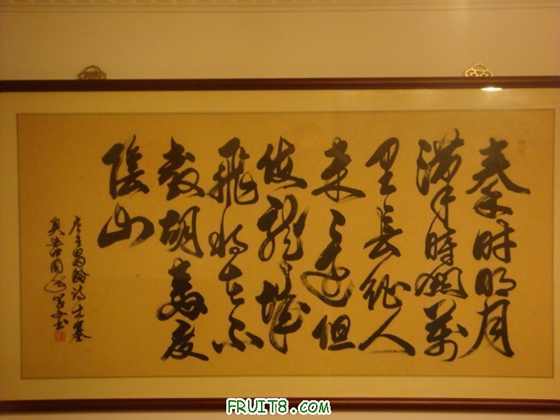 秦時明月
漢時關萬
里長征人
未還但
使龍城
飛將在不
教胡馬度
陰山
唐王昌齡詩出塞
FRUIT8.COM